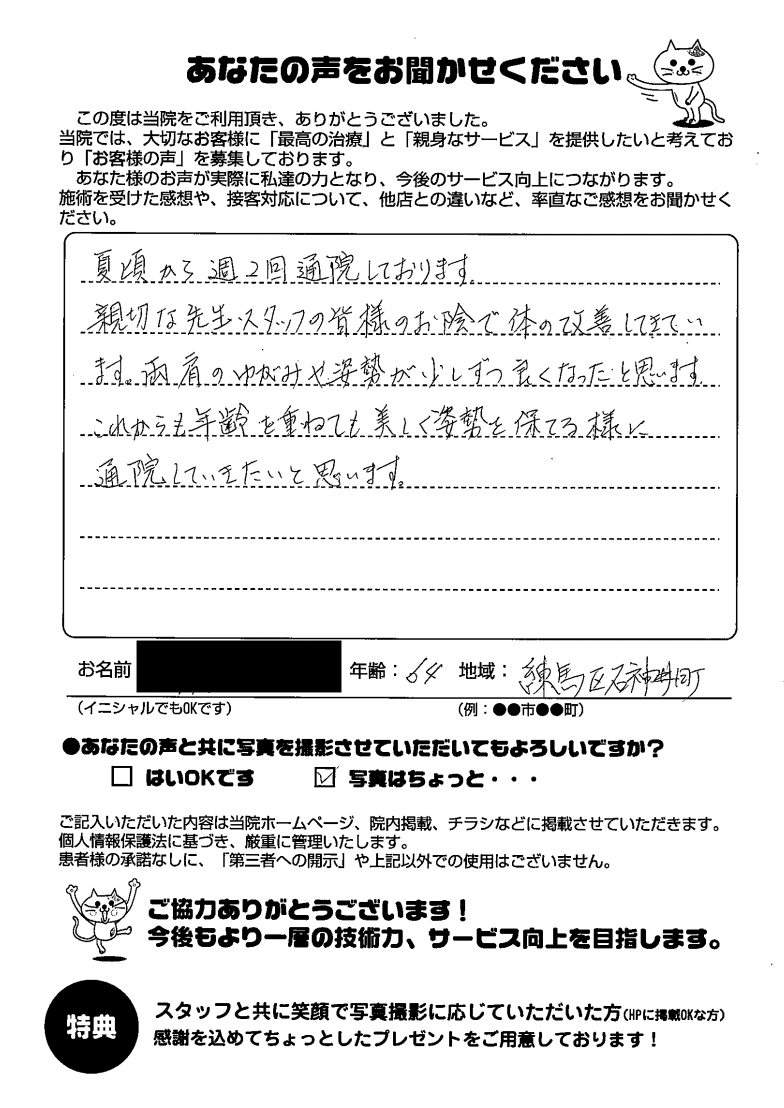 あなたの声をお聞かせください
この度は当院をご利用頂き、ありがとうございました。
当院では、大切なお客様に「最高の治療」と「親身なサービス」を提供したいと考えてお
り「お客様の声」を募集しております。
あなた様のお声が実際に私達の力となり、今後のサービス向上につながります。
施術を受けた感想や、接客対応について、他店との違いなど、率直なご感想をお聞かせく
ださい。
夏頃から週2回通院しております。
親切な先生・スタッフの皆様のお陰で体の改善してきてい
ます。両肩のゆがみや姿勢が少しずつ良くなったと思います
これからも年齢を重ねても美しく姿勢を保てる様に
通院していきたいと思います。
お名前 年齢：64 地域：練馬区石神井町
（イニシャルでもOKです） （例：●●市●●町）
●あなたの声と共に写真を撮影させていただいてもよろしいですか？
□ はいOKです ☑ 写真はちょっと・・・
ご記入いただいた内容は当院ホームページ、院内掲載、チラシなどに掲載させていただきます。
個人情報保護法に基づき、厳重に管理いたします。
患者様の承諾なしに、「第三者への開示」や上記以外での使用はございません。
ご協力ありがとうございます！
今後もより一層の技術力、サービス向上を目指します。
特典
スタッフと共に笑顔で写真撮影に応じていただいた方（HPに掲載OKな方）
感謝を込めてちょっとしたプレゼントをご用意しております！